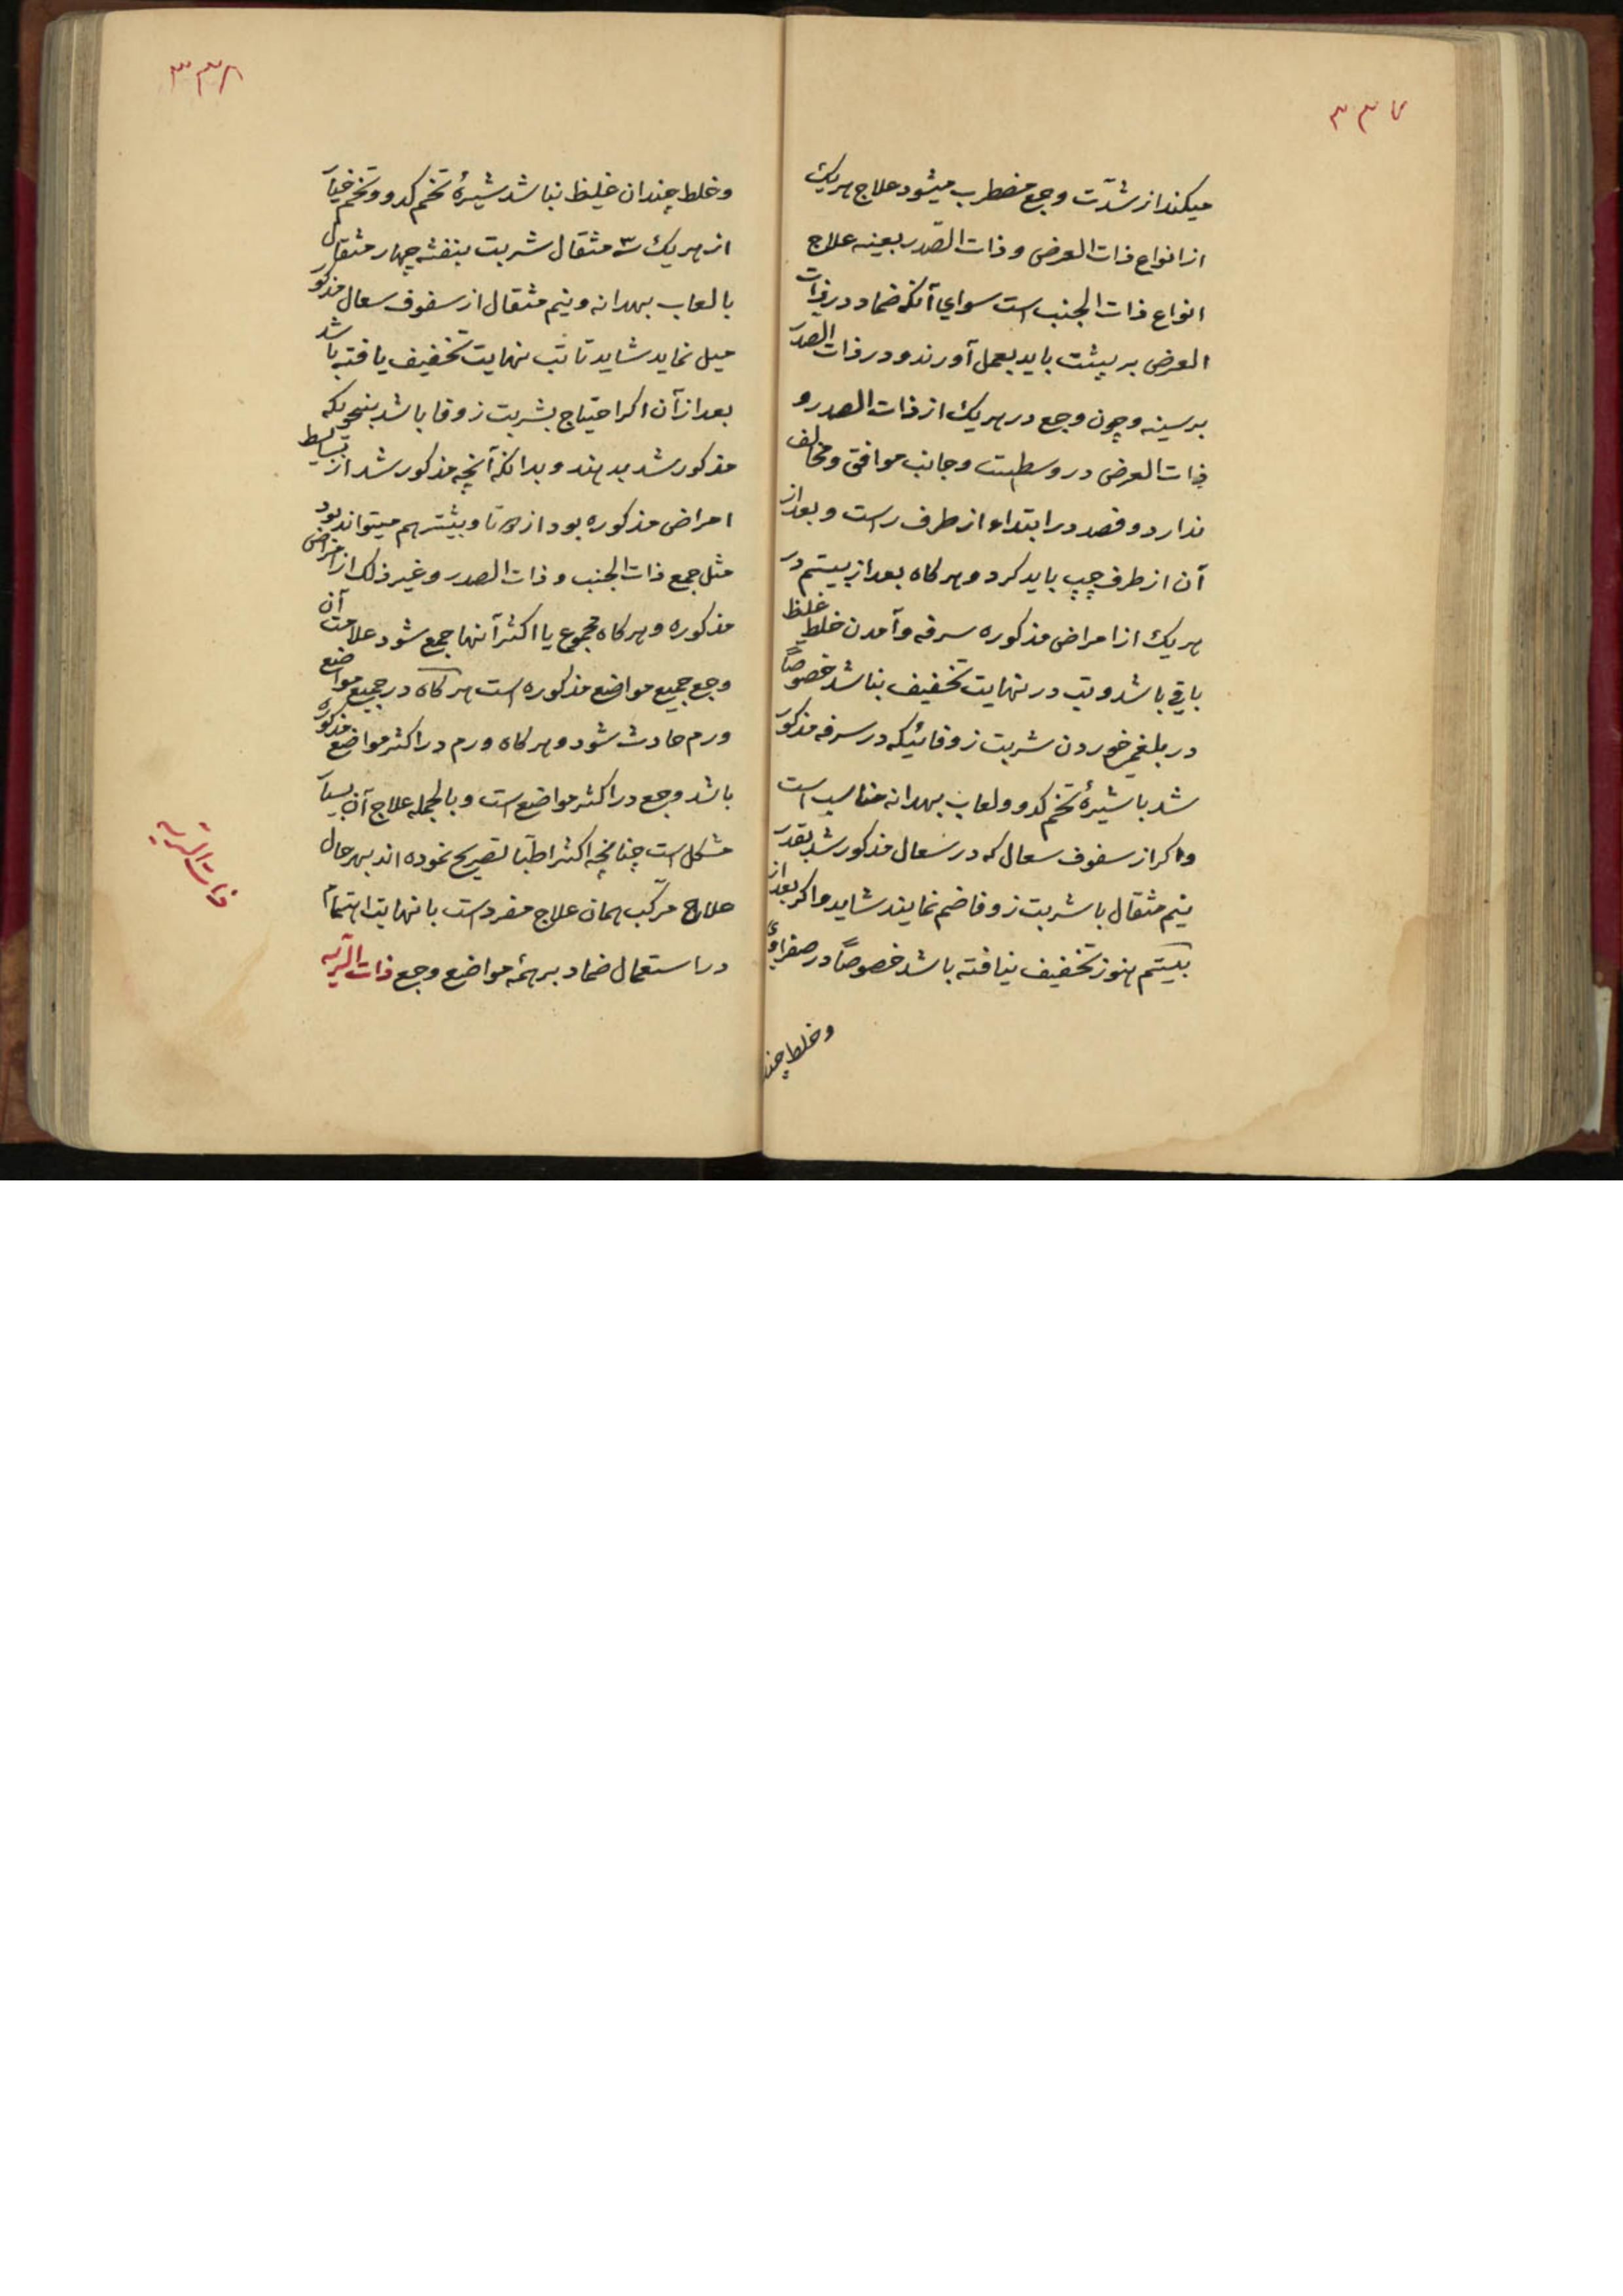 ۳۳۷
میکند از شدّت وجع مضطرب میشود علاج هریک
از انواع ذات العرض و ذات الصّدر بعینه علاج
انواع ذات الجنب است سوای آنکه ضماد در ذات
العرض بر پشت باید بعمل آورند و در ذات الصدر
بر سینه و چون وجع در هریک از ذات الصدر و
ذات العرض در وسطست و جانب موافق و مخالف
ندارد و فصد در ابتداء از طرف راست و بعد از
آن از طرف چپ باید کرد و هرکاه بعد از بیستم در
هریک از امراض مذکوره سرفه و آمدن خلط غلیظ
باقی باشد و تب در نهایت تخفیف نباشد خصوصاً
در بلغمی خوردن شربت زوفائیکه در سرفه مذکور
شد با شیرهٔ تخم کدو و لعاب بهدانه مناسب است
و اکر از سفوف سعال که در سعال مذکور شد بقدر
نیم مثقال با شربت زوفا ضم نمایند شاید و اکر بعد از
بیستم هنوز تخفیف نیافته باشد خصوصاً در صفراوی
و خلط چند
۳۳۸
و خلط چندان غلیظ نباشد شیرهٔ تخم کدو و تخم خیار
از هریک ۳ مثقال شربت بنفشه چهار مثقال
با لعاب بهدانه و نیم مثقال از سفوف سعال مذکور
میل نماید شاید تا تب نهایت تخفیف یافته باشد
بعد از آن اکر احتیاج بشربت زوفا باشد بنحویکه
مذکور شد بدهند و بدانکه آنچه مذکور شد از بسایط
امراض مذکوره بود از تا و بیشتر هم میتواند بود
مثل جمع ذات الجنب و ذات الصدر و غیر ذلک از امراض
مذکوره و هرکاه مجموع یا اکثر آنها جمع شود علامت آن
وجع جمیع مواضع مذکوره است هرکاه در جمیع مواضع
ورم حادث شود و هرکاه ورم در اکثر مواضع مذکوره
باشد وجع در اکثر مواضع است و بالجمله علاج آن بسیار
مشکل است چنانچه اکثر اطبّا تصریح نموده اند بهرحال
علاج مرکّب همان علاج مفرد است با نهایت اهتمام
در استعمال ضماد بر همهٔ مواضع وجع ذات الریه
ذات الریه